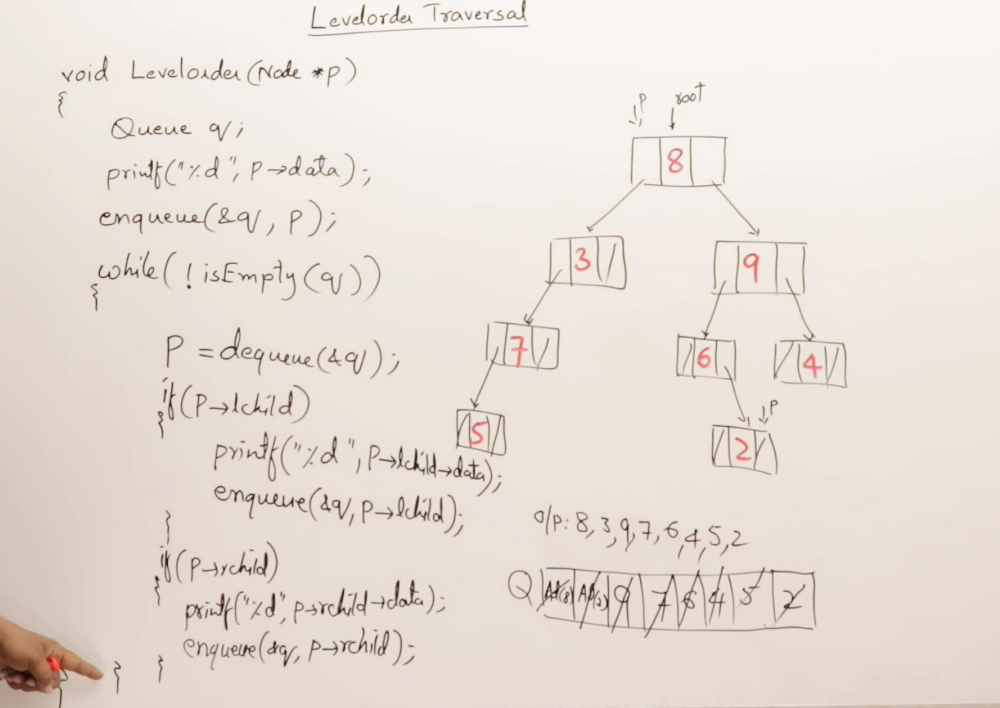 Levelorder Traversal
void Levelorder(Node *p)
{
Queue q;
printf("%d", P→data);
enqueue(&q, p);
while(!isEmpty(q))
{
P = dequeue(&q);
if(P→lchild)
{
printf("%d", P→lchild→data);
enqueue(&q, P→lchild);
}
if(P→rchild)
{
printf("%d", p→rchild→data);
enqueue(&q, P→rchild);
}
}
}
P root
8
3 9
7 6 4
P
5 2
o/p: 8, 3, 9, 7, 6, 4, 5, 2
Q Ad(8) Ad(3) 9 7 6 4 5 2